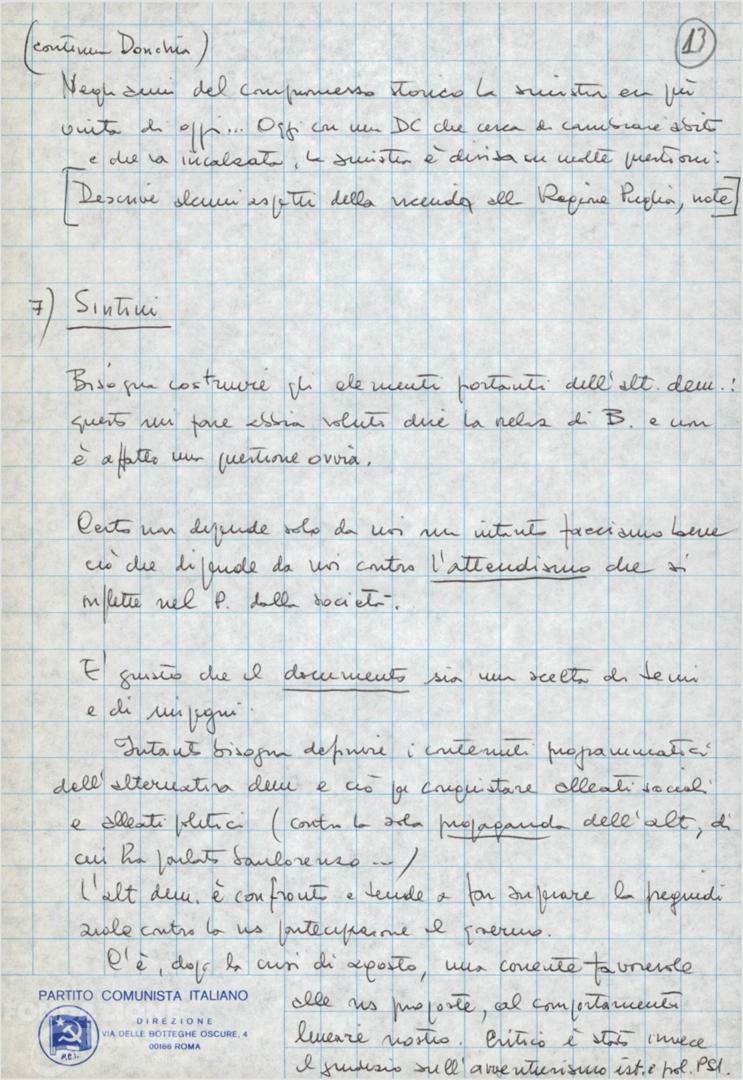 (continua Donchia) 13
Negli anni del compromesso storico la sinistra era più
unita di oggi... Oggi con una DC che cerca di cambiare abiti
e che va incalzata, la sinistra è divisa su molte questioni.
[Descrive alcuni aspetti della vicenda alla Regione Puglia, note]
7) Sintini
Bisogna costruire gli elementi portanti dell'alt. dem.:
questo mi pare abbia voluto dire la relaz di B. e non
è affatto una questione ovvia.
Certo non dipende solo da noi ma intanto facciamo bene
ciò che dipende da noi contro l'attendismo che si
riflette nel P. dalla società.
E' giusto che il documento sia una scelta di temi
e di impegni.
Intanto bisogna definire i contenuti programmatici
dell'alternativa dem e ciò per conquistare alleati sociali
e alleati politici (contro la sola propaganda dell'alt, di
cui ha parlato Sanlorenzo ...)
L'alt dem. è confronto e tende a far superare la pregiudi
ziale contro la ns partecipazione al governo.
C'è, dopo la crisi di agosto, una corrente favorevole
alle ns proposte, al comportamento
lineare nostro. Critico è stato invece
il giudizio sull'avventurismo ist. e pol. PSI.
PARTITO COMUNISTA ITALIANO
DIREZIONE
VIA DELLE BOTTEGHE OSCURE, 4
00186 ROMA
P.C.I.